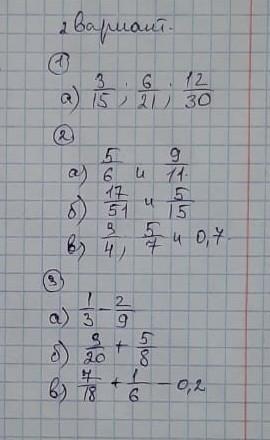 2 вариант.
1
а) 3/15 ; 6/21 ; 12/30
2
а) 5/6 и 9/11
б) 17/51 и 5/15
в) 3/4, 5/7 и 0,7.
3
а) 1/3 - 2/9
б) 3/20 + 5/8
в) 7/18 + 1/6 - 0,2